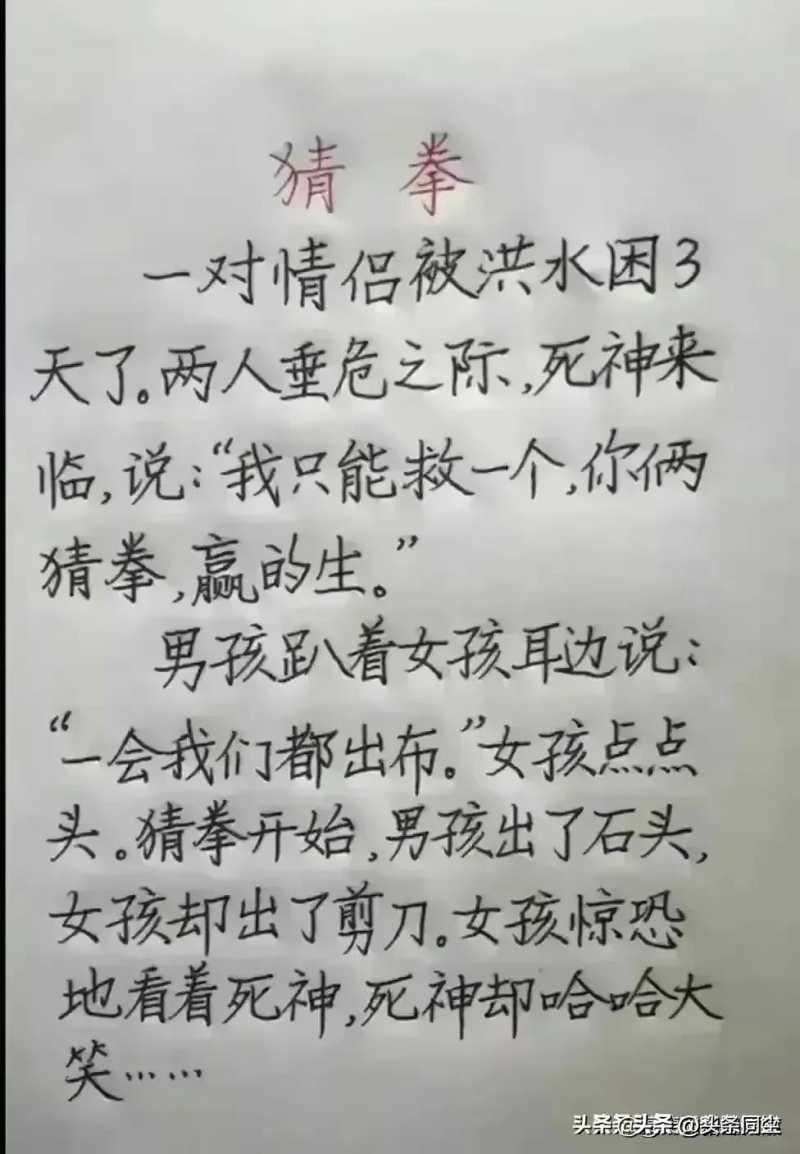 猜拳
一对情侣被洪水困3
天了。两人垂危之际,死神来
临,说:“我只能救一个,你俩
猜拳,赢的生。”
男孩趴着女孩耳边说:
“一会我们都出布。”女孩点点
头。猜拳开始,男孩出了石头,
女孩却出了剪刀。女孩惊恐
地看着死神,死神却哈哈大
笑……